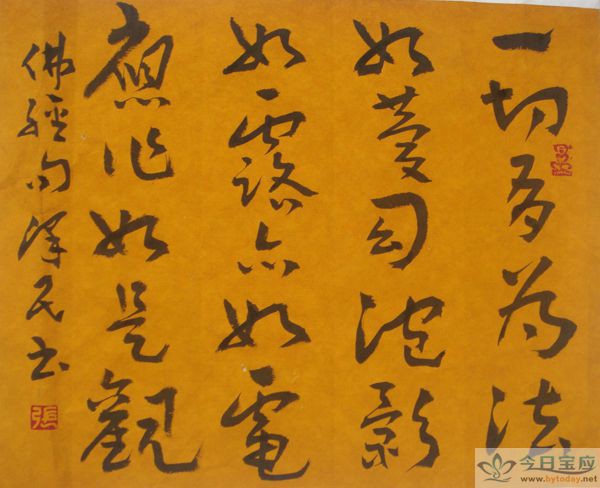 一切有為法
如夢幻泡影
如露亦如電
應作如是觀
佛經句澤民書
張
今日宝应
www.bytoday.net